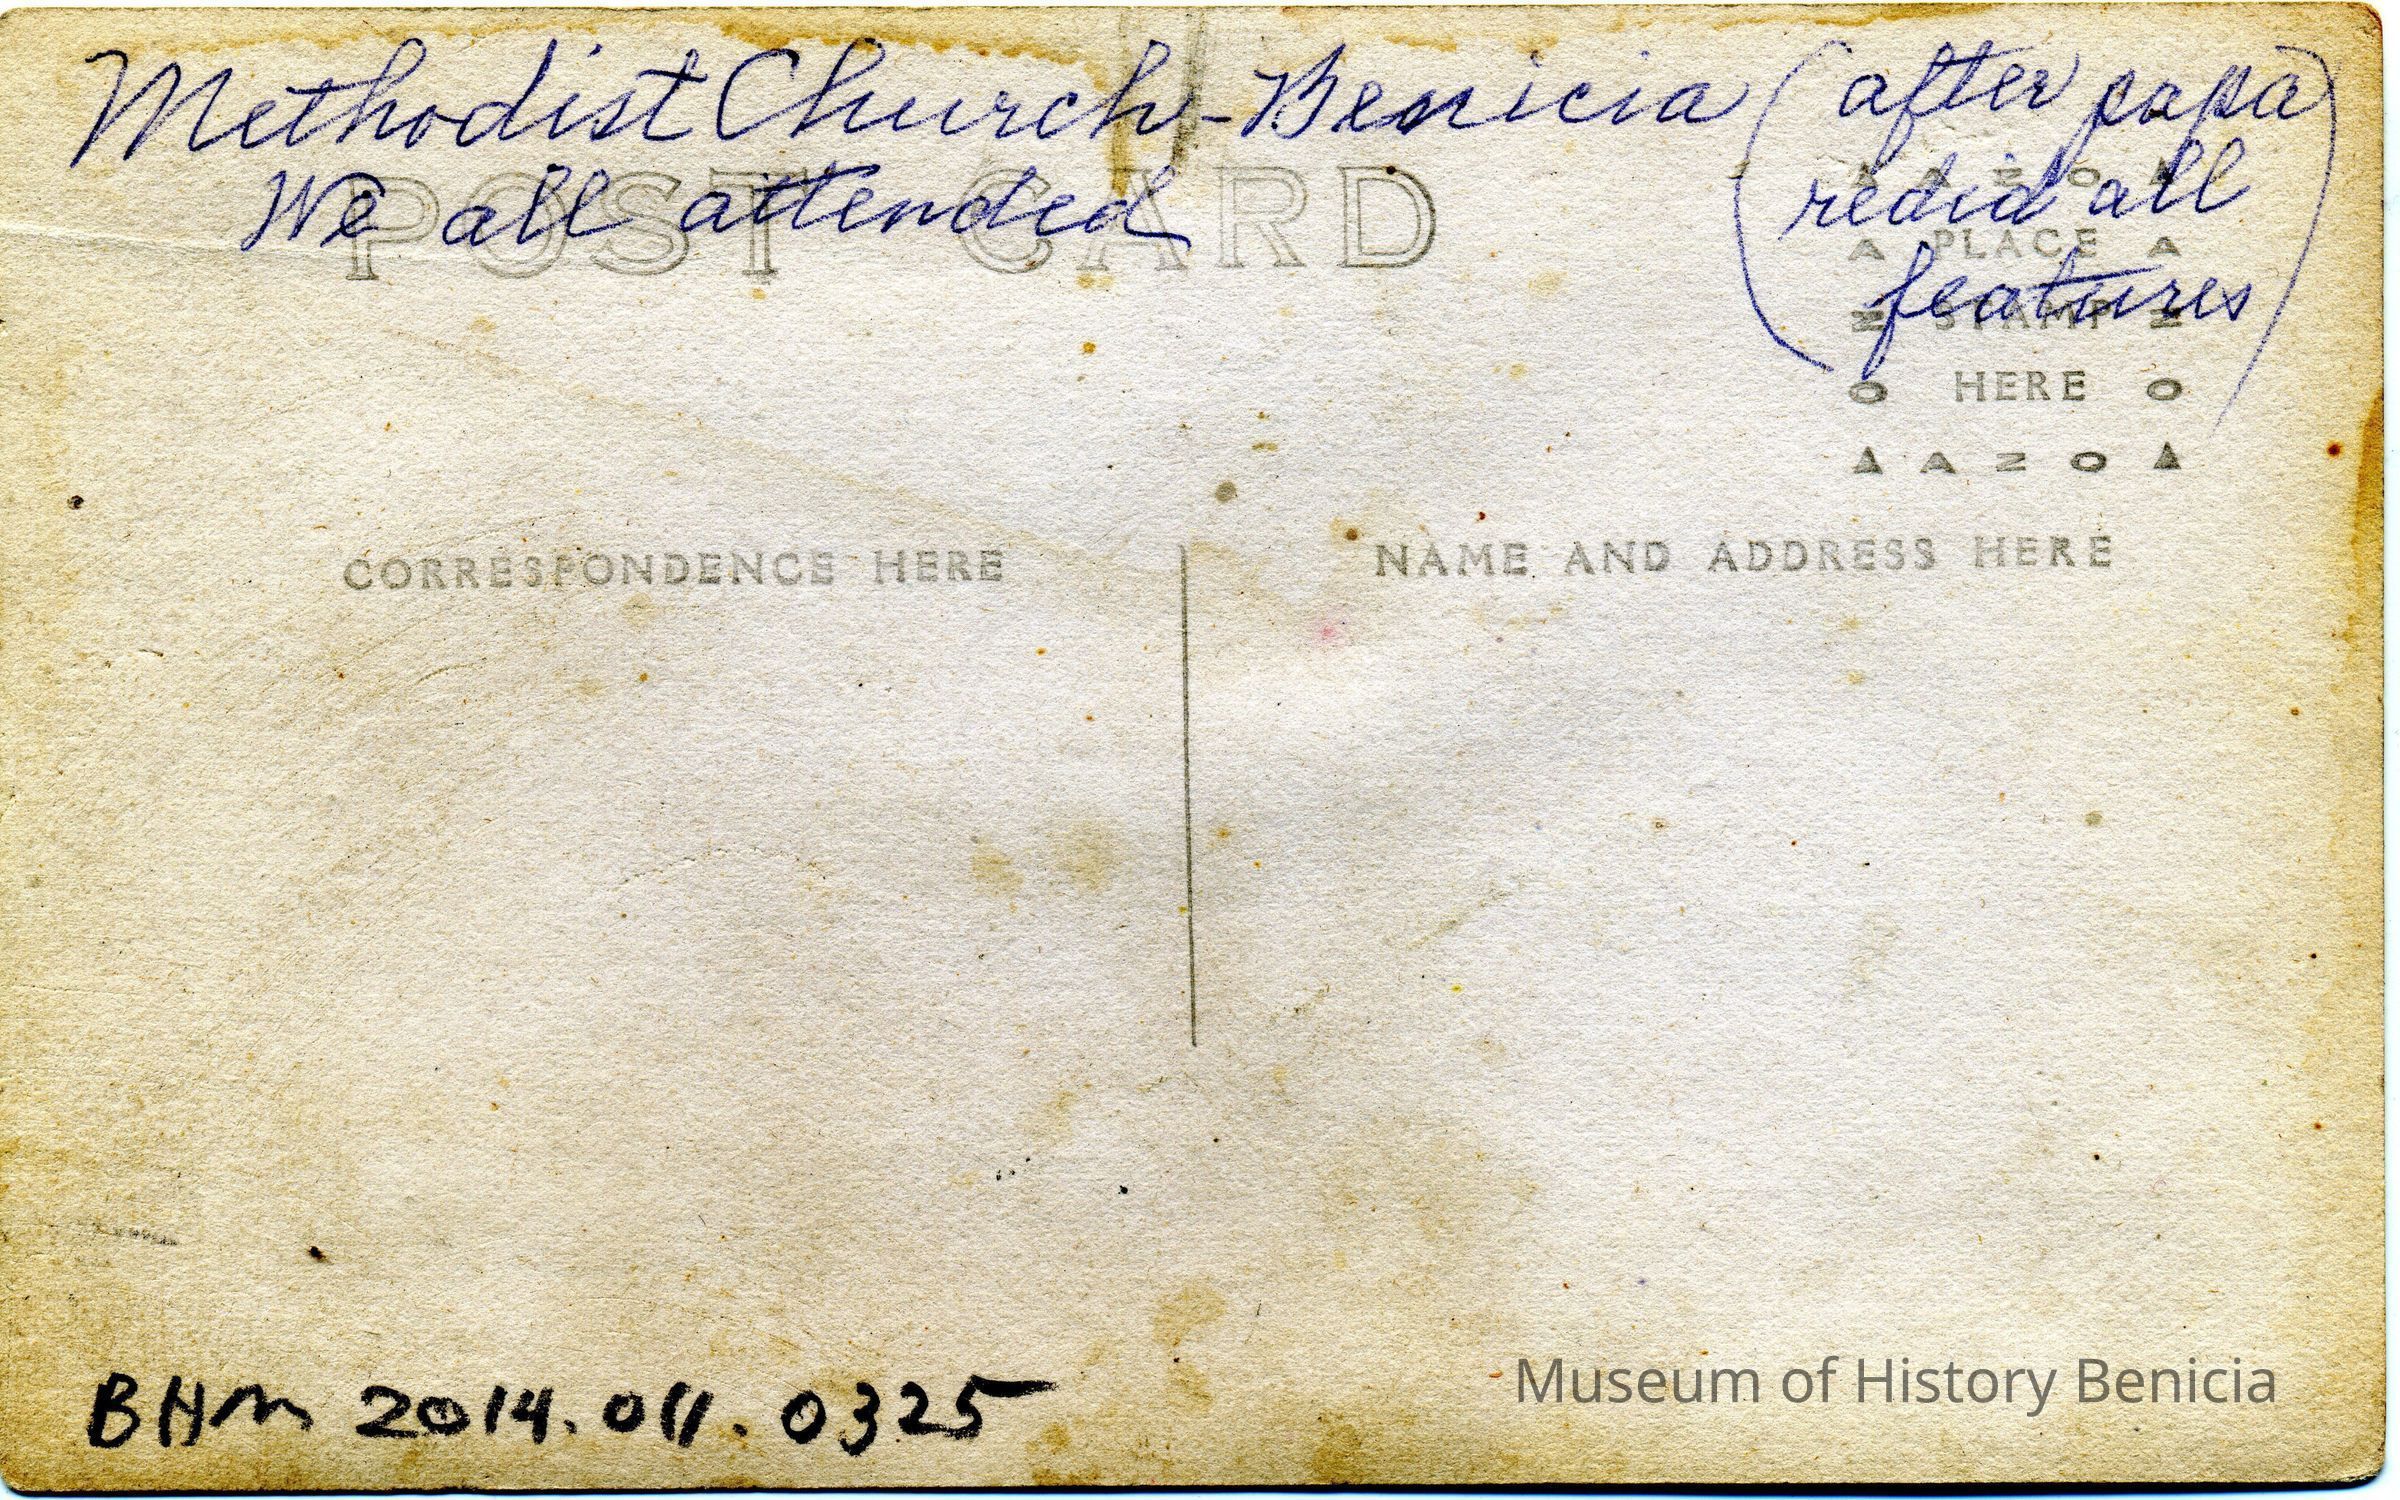 Methodist Church - Benicia (after papa
redid all
features)
We all attended
POST CARD
AZO
A PLACE A
Z STAMP Z
O HERE O
AZO
CORRESPONDENCE HERE
NAME AND ADDRESS HERE
BHM 2014.011.0325
Museum of History Benicia